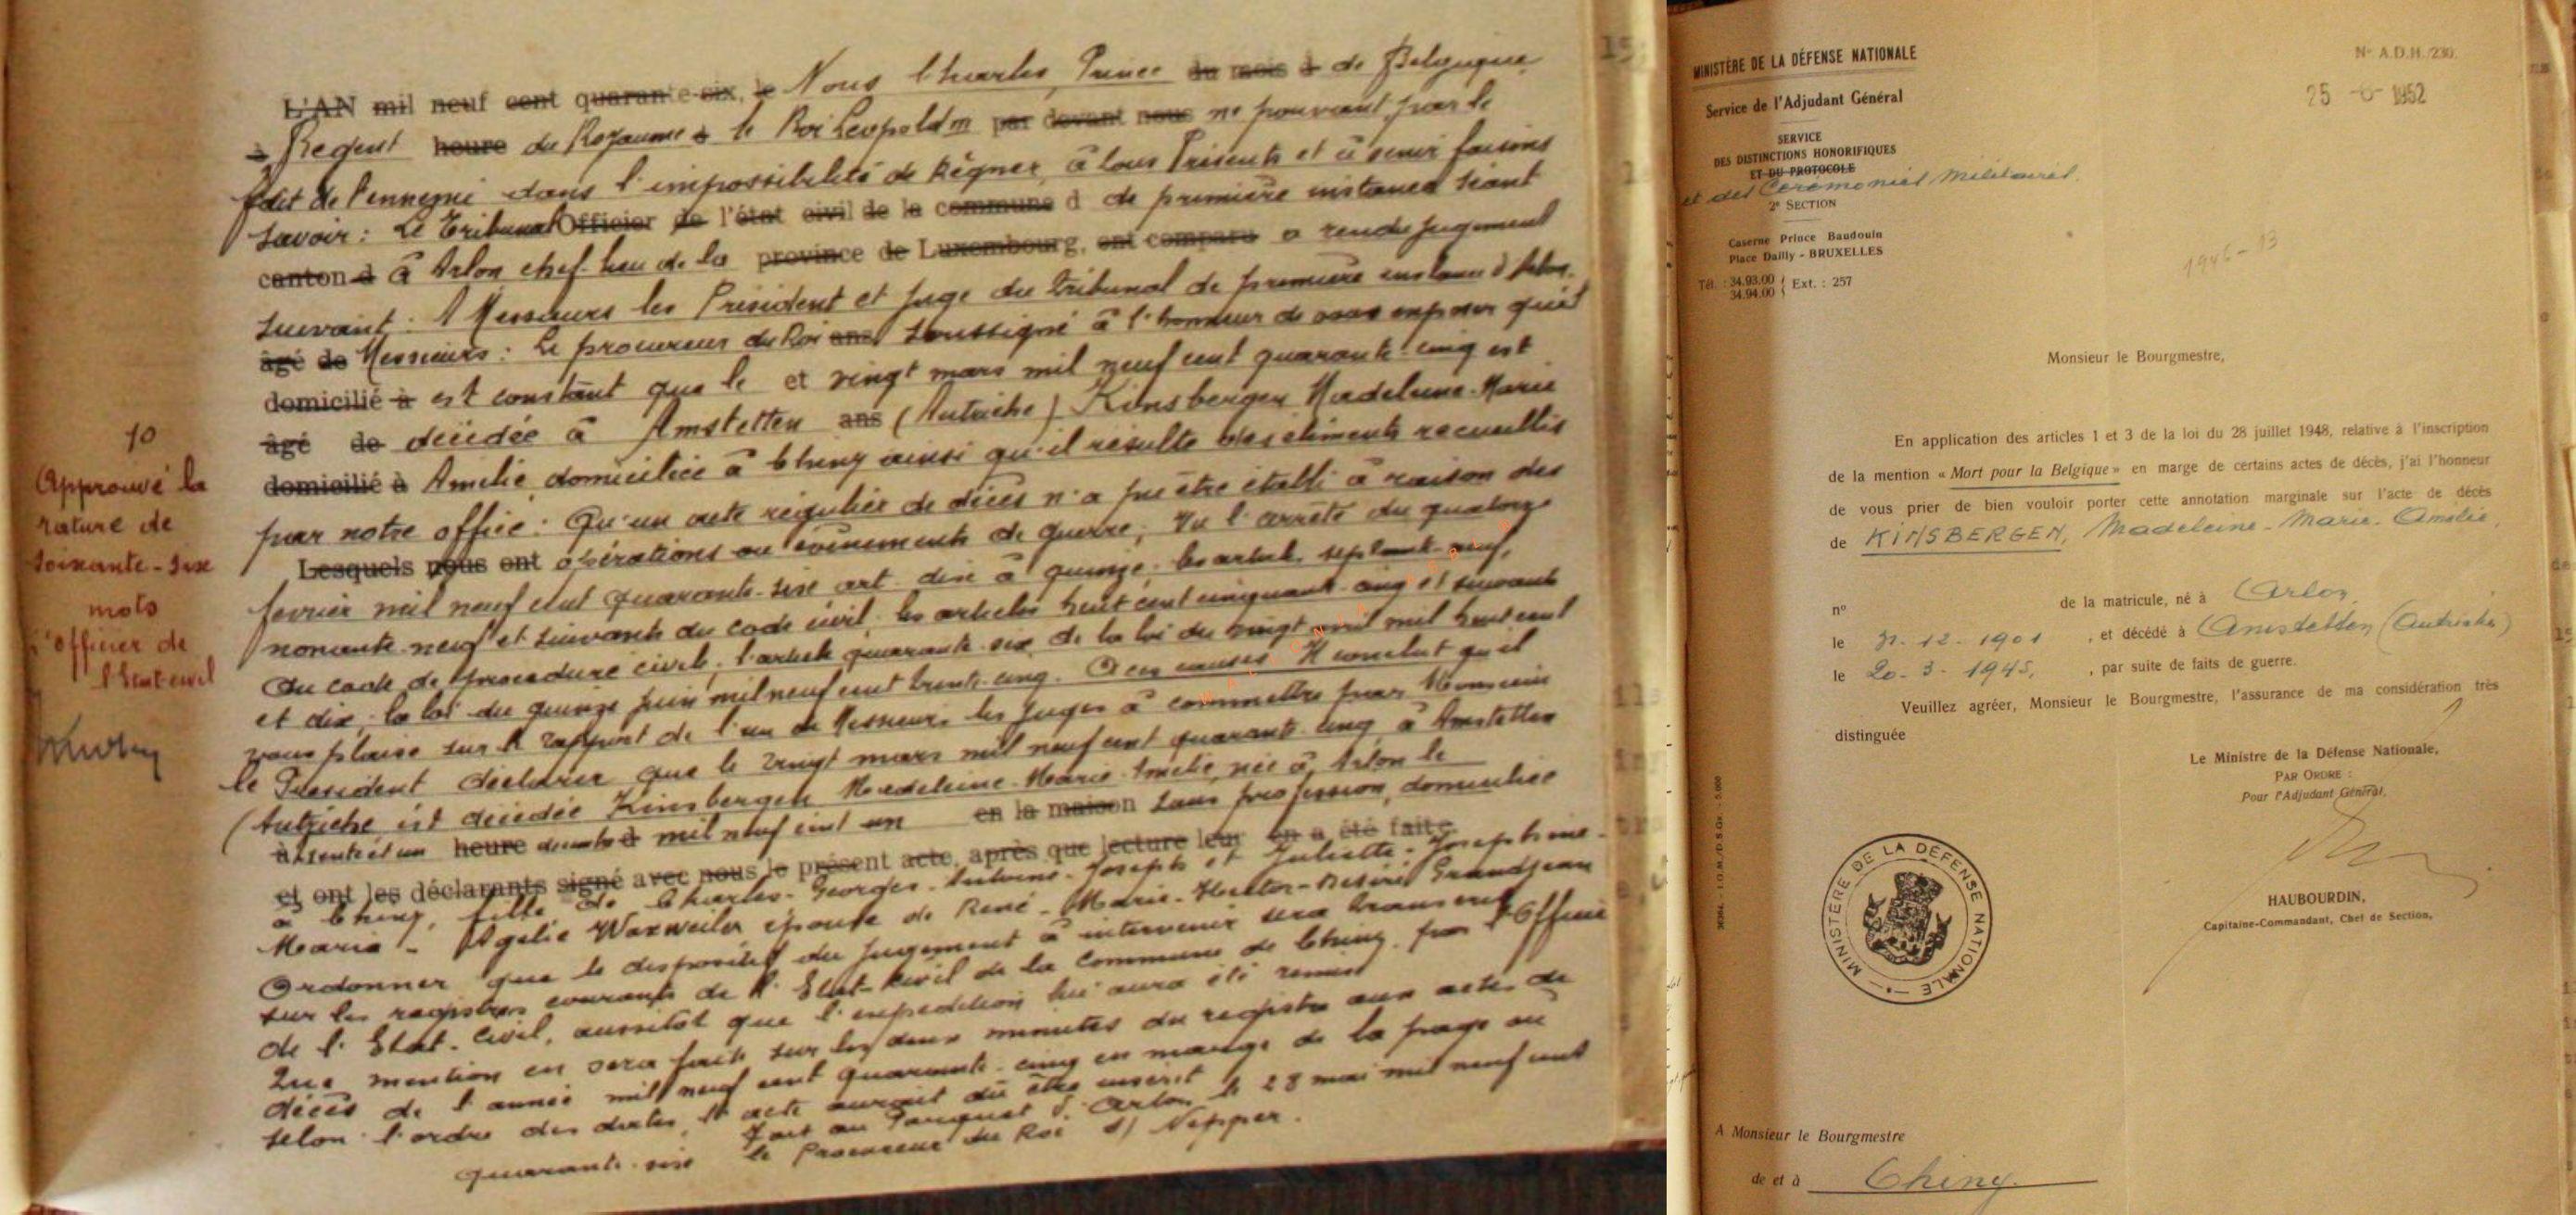 L'AN mil neuf cent quarante-six, le Nous Charles, Prince du mois d de Belgique
à Regent heure du Royaume à le Roi Leopold III par devant nous ne pouvant par le
fait de l'ennemi dans l'impossibilité de Règner, à tous Présents et à venir faisons
savoir: Le Tribunal Officier de l'état civil de la commune d de première instance séant
canton d à Arlon chef-lieu de la province de Luxembourg, ont comparu a rendu jugement
suivant: A Messieurs les Président et Juge du Tribunal de première instance d'Arlon.
âgé de Messieurs: Le procureur du Roi ans, soussigné à l'honneur de vous exposer qu'il
domicilié à est constant que le et vingt mars mil neuf cent quarante-cinq est
âgé de décédée à Amstetten ans (Autriche) Kinsbergen Madeleine-Marie
domicilié à Amélie, domiciliée à Chiny ainsi qu'il résulte des éléments recueillis
par notre office: Qu'un acte régulier de décès n'a pu être établi à raison des
Lesquels nous ont opérations ou évènements de guerre; Vu l'arrêté du quatorze
fevrier mil neuf cent quarante-six art. dix à quinze; les articles septante-neuf,
nonante-neuf et suivants du code civil; les articles huit cent cinquante-cinq et suivants
du code de procédure civile; l'article quarante-six de la loi du vingt avril mil huit cent
et dix; la loi du quinze juin mil neuf cent trente-cinq. A ces causes Il conclut qu'il
vous plaise sur le rapport de l'un de Messieurs les Juges à commettre par Monsieur
le President déclarer que le vingt mars mil neuf cent quarante-cinq à Amstetten
(Autriche est décédée Kinsbergen Madeleine-Marie-Amélie, née à Arlon le
à trente et un heure décembre d mil neuf cent un en la maison sans profession, domiciliée
et ont les déclarants signé avec nous le présent acte, après que lecture leur en a été faite.
à Chiny, fille de Charles-Georges-Antoine-Joseph et Juliette-Josephine-
Maria-Agélie Waxweiler épouse de René-Marie-Hector-Désiré Grandjean
Ordonner que le dispositif du jugement à intervenir sera transcrit
sur les registres courants de l'Etat-Civil de la commune de Chiny, par l'Officier
de l'Etat-Civil, aussitôt que l'expedition lui aura été remise
Que mention en sera faite sur les deux minutes du registre aux actes de
décès de l'année mil neuf cent quarante-cinq en marge de la page ou
selon l'ordre des dates, l'acte aurait dû être inscrit
Fait au Parquet d'Arlon le 28 mai mil neuf cent
quarante-six le Procureur du Roi s/ Nepper.
10
Approuvé la
rature de
soixante-six
mots
l'officier de
l'Etat civil
MINISTÈRE DE LA DÉFENSE NATIONALE
Service de l'Adjudant Général
SERVICE
DES DISTINCTIONS HONORIFIQUES
ET DU PROTOCOLE
et des Cérémonies Militaires.
2e SECTION
Caserne Prince Baudouin
Place Dailly - BRUXELLES
Tél. : 34.93.00
34.94.00 } Ext. : 257
N° A.D.H./230.
25 -6- 1952
1946-13
Monsieur le Bourgmestre,
En application des articles 1 et 3 de la loi du 28 juillet 1948, relative à l'inscription
de la mention « Mort pour la Belgique » en marge de certains actes de décès, j'ai l'honneur
de vous prier de bien vouloir porter cette annotation marginale sur l'acte de décès
de KINSBERGEN, Madeleine-Marie-Amélie,
n° de la matricule, né à Arlon,
le 31-12-1901, et décédé à Amstetten (Autriche)
le 20-3-1945, , par suite de faits de guerre.
Veuillez agréer, Monsieur le Bourgmestre, l'assurance de ma considération très
distinguée
Le Ministre de la Défense Nationale,
PAR ORDRE :
Pour l'Adjudant Général,
HAUBOURDIN,
Capitaine-Commandant, Chef de Section,
MINISTÈRE DE LA DÉFENSE NATIONALE
A Monsieur le Bourgmestre
de et à Chiny.